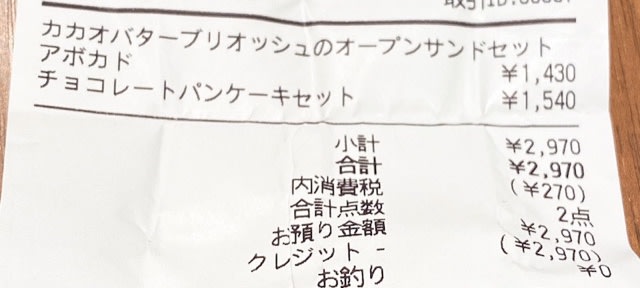 カカオバターブリオッシュのオープンサンドセット
アボカド ¥1,430
チョコレートパンケーキセット ¥1,540
小計 ¥2,970
合計 ¥2,970
内消費税 (¥270)
合計点数 2点
お預り金額 ¥2,970
クレジット - (¥2,970)
お釣り ¥0